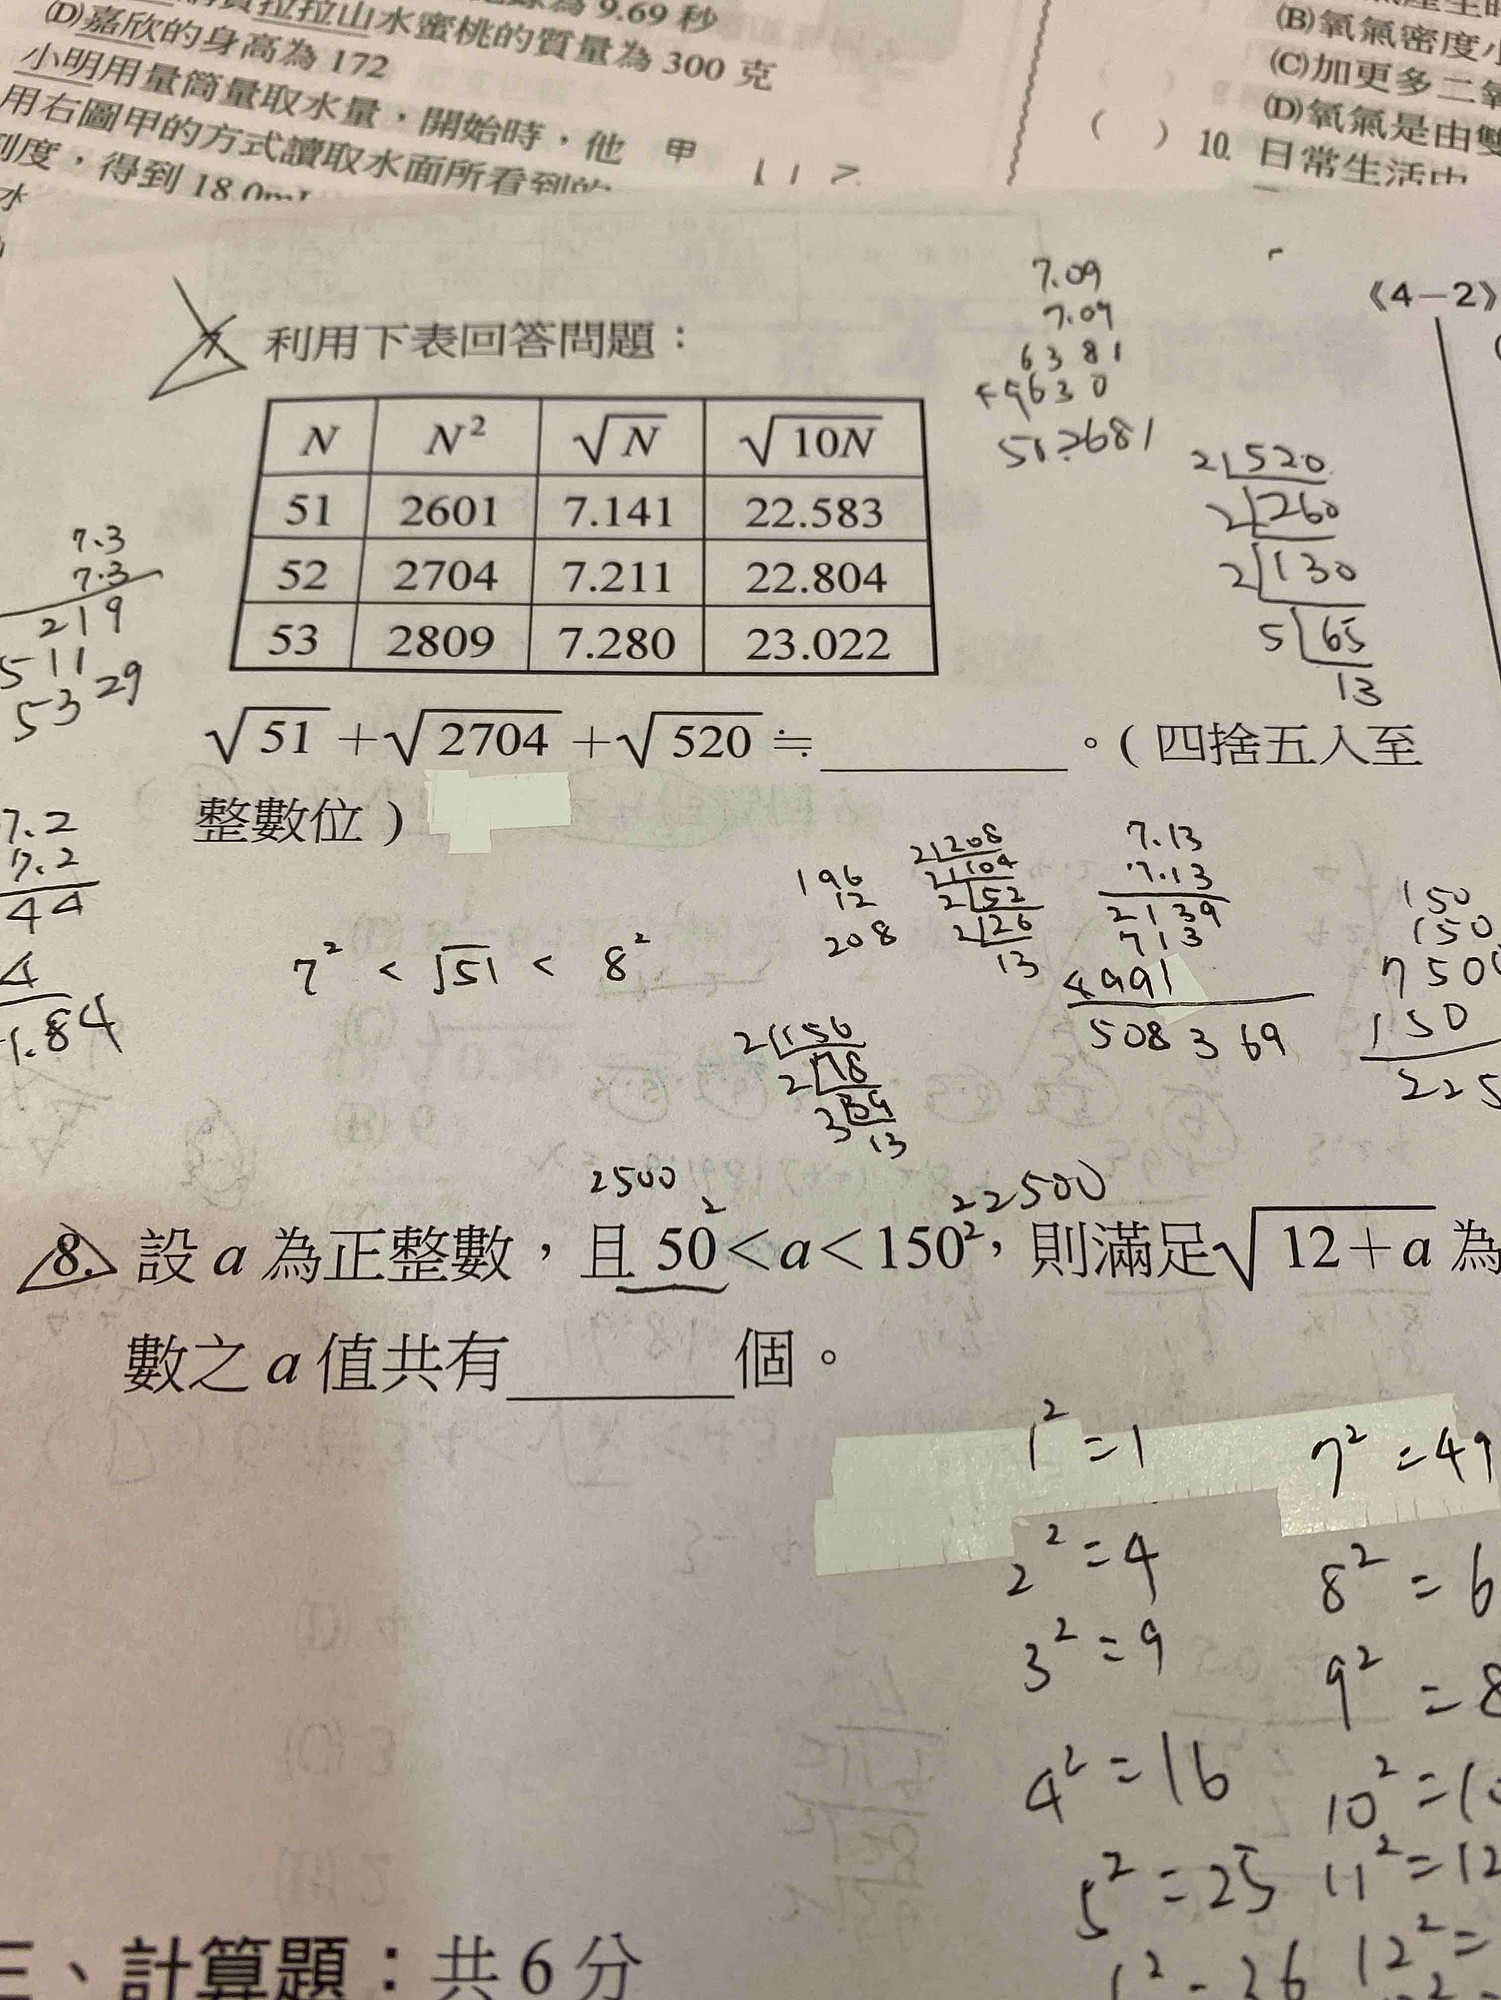 為 9.69 秒
拉拉山水蜜桃的質量為 300 克
(D)嘉欣的身高為 172
小明用量筒量取水量，開始時，他 甲
用右圖甲的方式讀取水面所看到的
刻度，得到 18.0mL
水
(B)氧氣密度小
(C)加更多二氧
(D)氧氣是由雙
( ) 10. 日常生活中
《4－2》
7. 利用下表回答問題：
N N² √N √10N
51 2601 7.141 22.583
52 2704 7.211 22.804
53 2809 7.280 23.022
√51 +√2704 +√520 ≒ 。( 四捨五入至
整數位 )
7.09
7.09
6381
49630
50.2681
2 520
2 260
2 130
5 65
13
7.3
7.3
219
511
5329
7.2
7.2
44
1.84
7² < √51 < 8²
196
12
208
2 208
2 104
2 52
2 26
13
7.13
7.13
2139
713
4991
508369
150
150
750
150
225
2 156
2 78
3 39
13
2500 22500
8. 設 a 為正整數，且 50² < a < 150²，則滿足 √12＋a 為
數之 a 值共有 個。
1² = 1 7² = 49
2² = 4 8² = 6
3² = 9 9² = 8
4² = 16 10² = 10
5² = 25 11² = 12
36 12² =
三、計算題：共 6 分